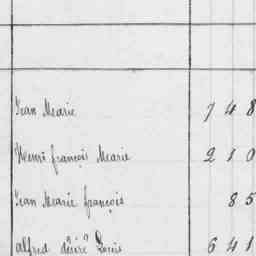 Jean Marie 7 4 8
Henri françois Marie 2 1 0
Jean Marie françois 8 5
alfred désiré Louis 6 4 1